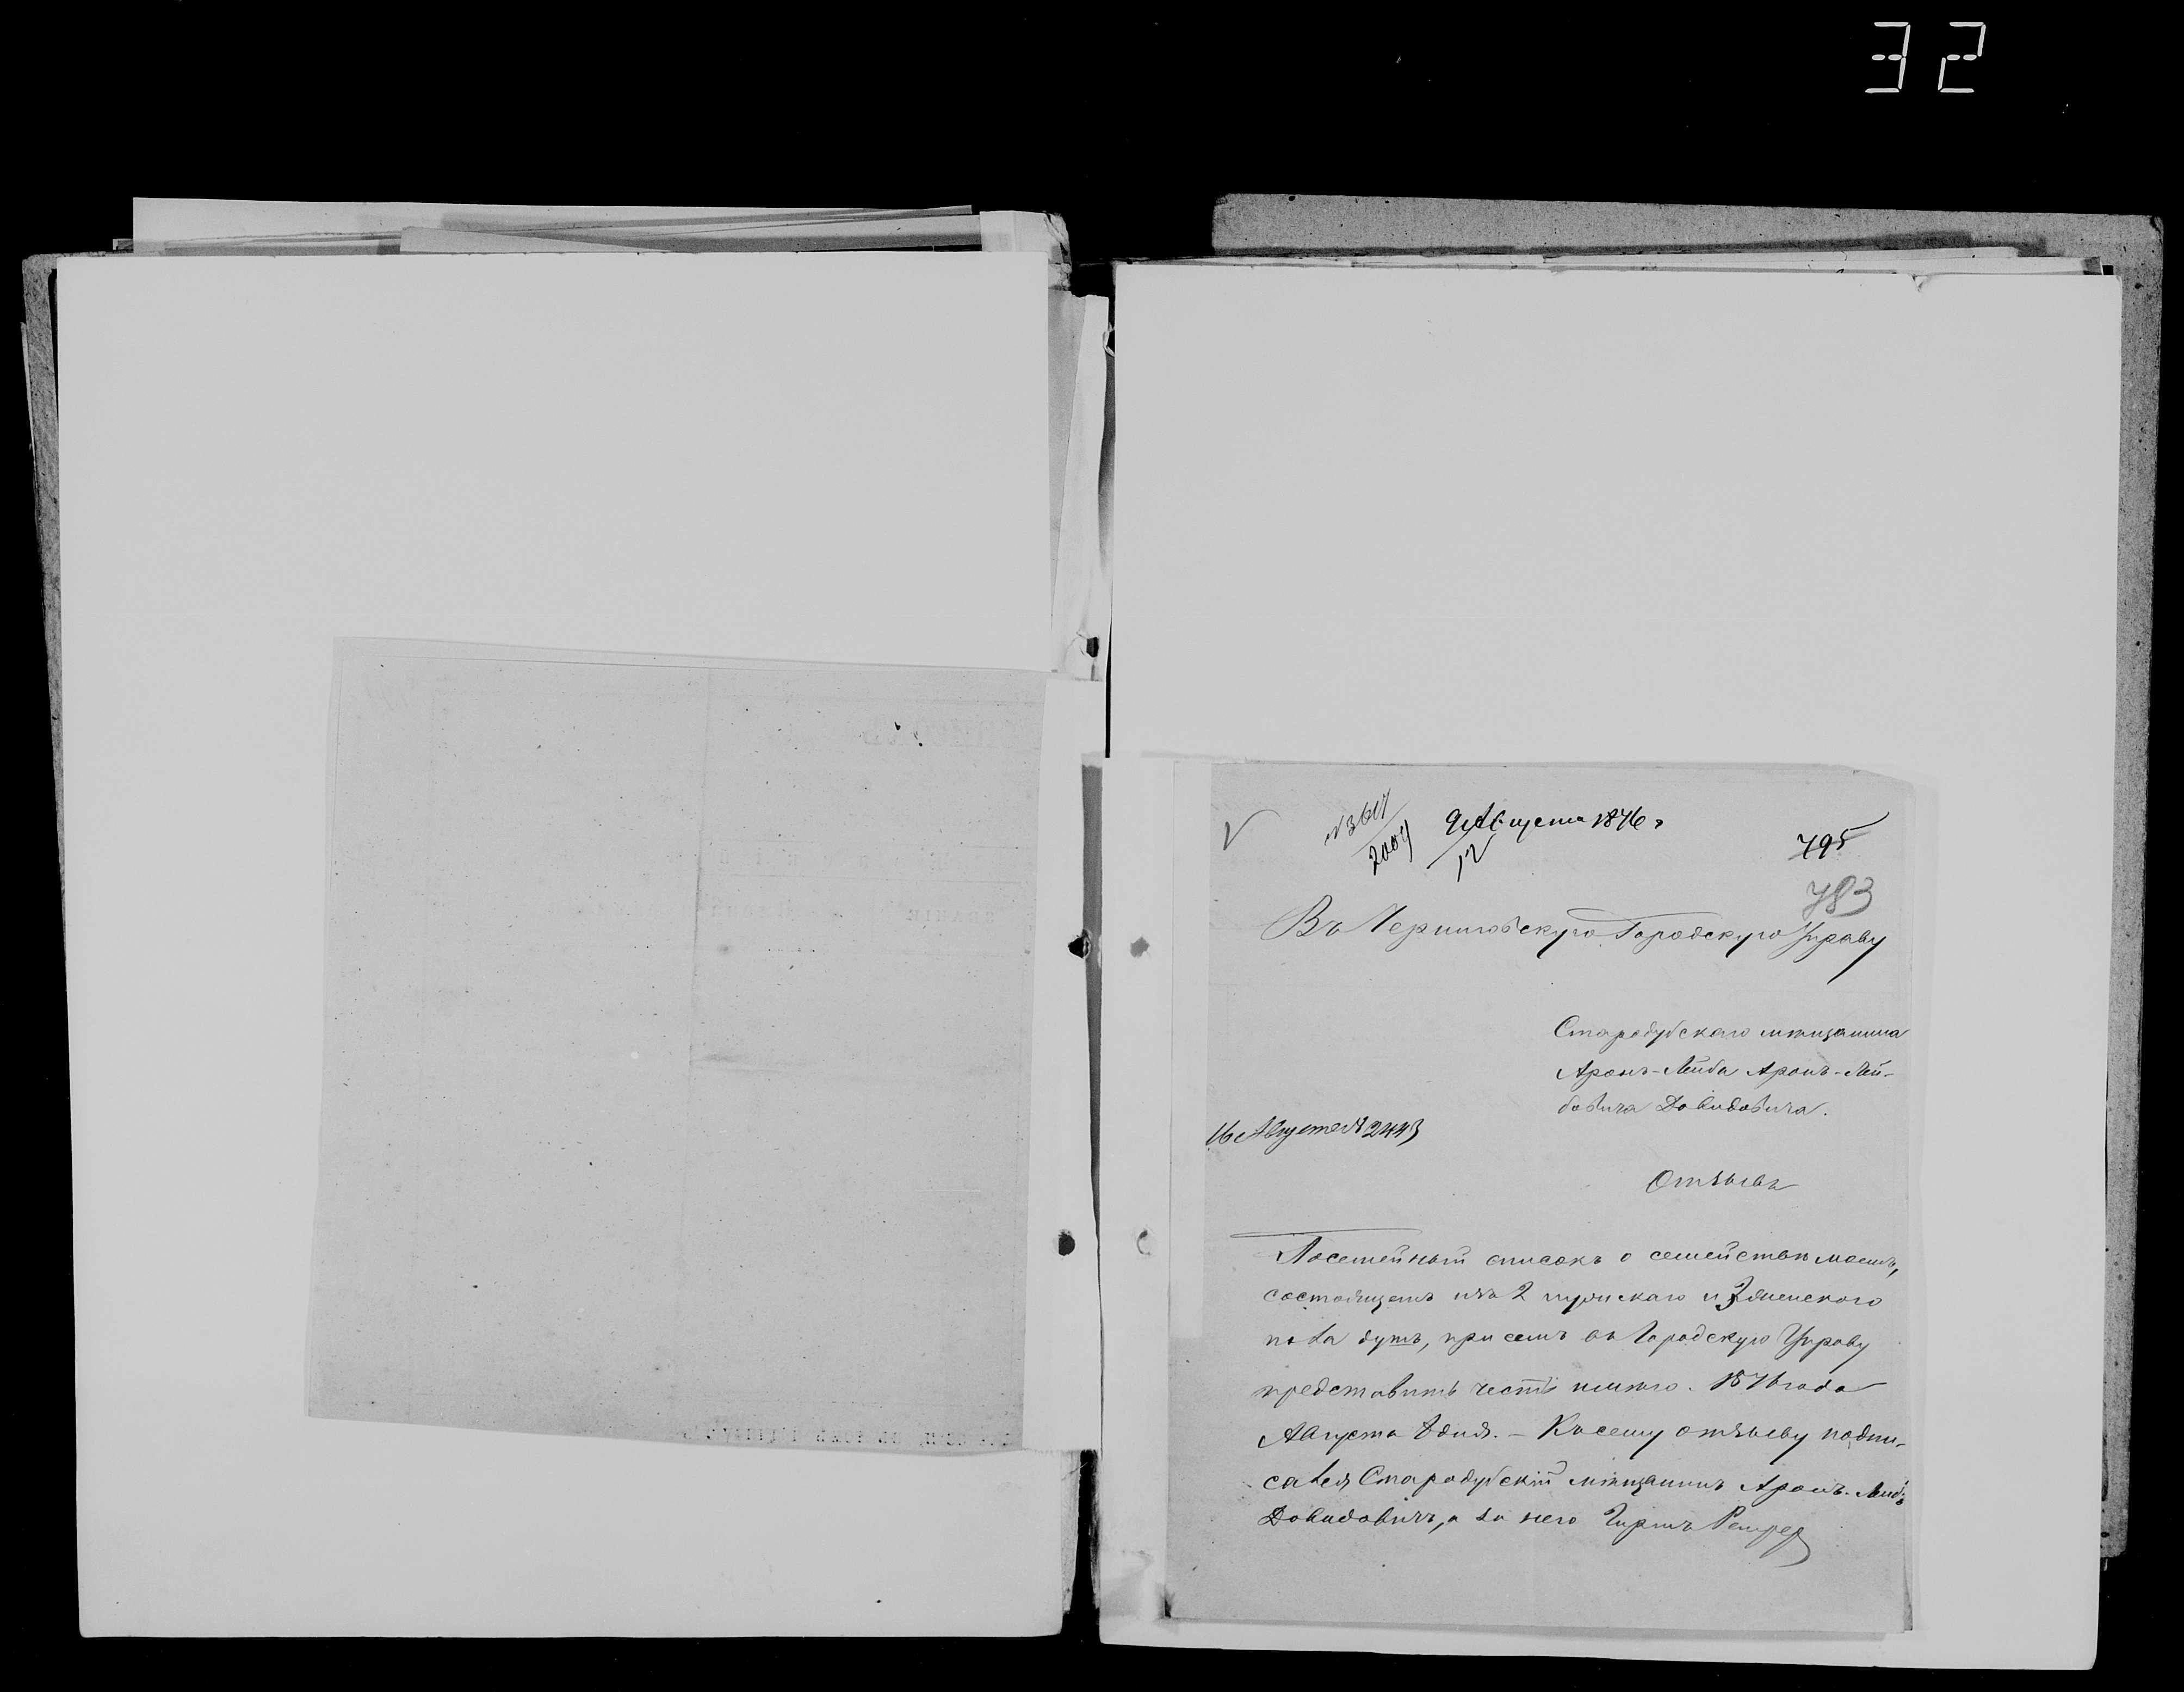 32
№ 3617
2004
9 Августа 1876 г
12
795
783
Въ Черниговскую Городскую Управу
Стародубскаго мѣщанина
Аронъ-Лейба Аронъ-Лей-
бовича Довидовича.
16 Августа № 2443
Отзывъ
Посемейный списокъ о семействѣ моемъ,
состоящемъ изъ 2 мужскаго и 3 женскаго
пола душъ, при семъ въ Городскую Управу
представить честь имѣю. 1876 года
Августа 8 дня. – Къ сему отзыву подпи-
сался Стародубскій мѣщанинъ Аронъ-Лейба
Довидовичъ, а за него Гиршъ